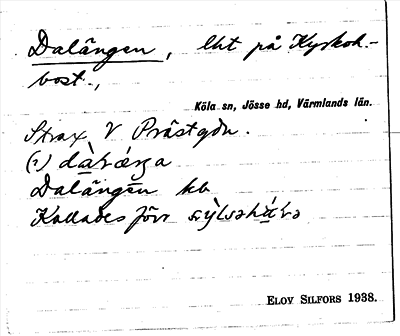 Dalängen, lht på Kyrkoh.-
bost.,
Köla sn, Jösse hd, Värmlands län.
Strax V Prästgdn.
(1)
Dalängen kb
Kallades förr
ELOV SILFORS 1938.